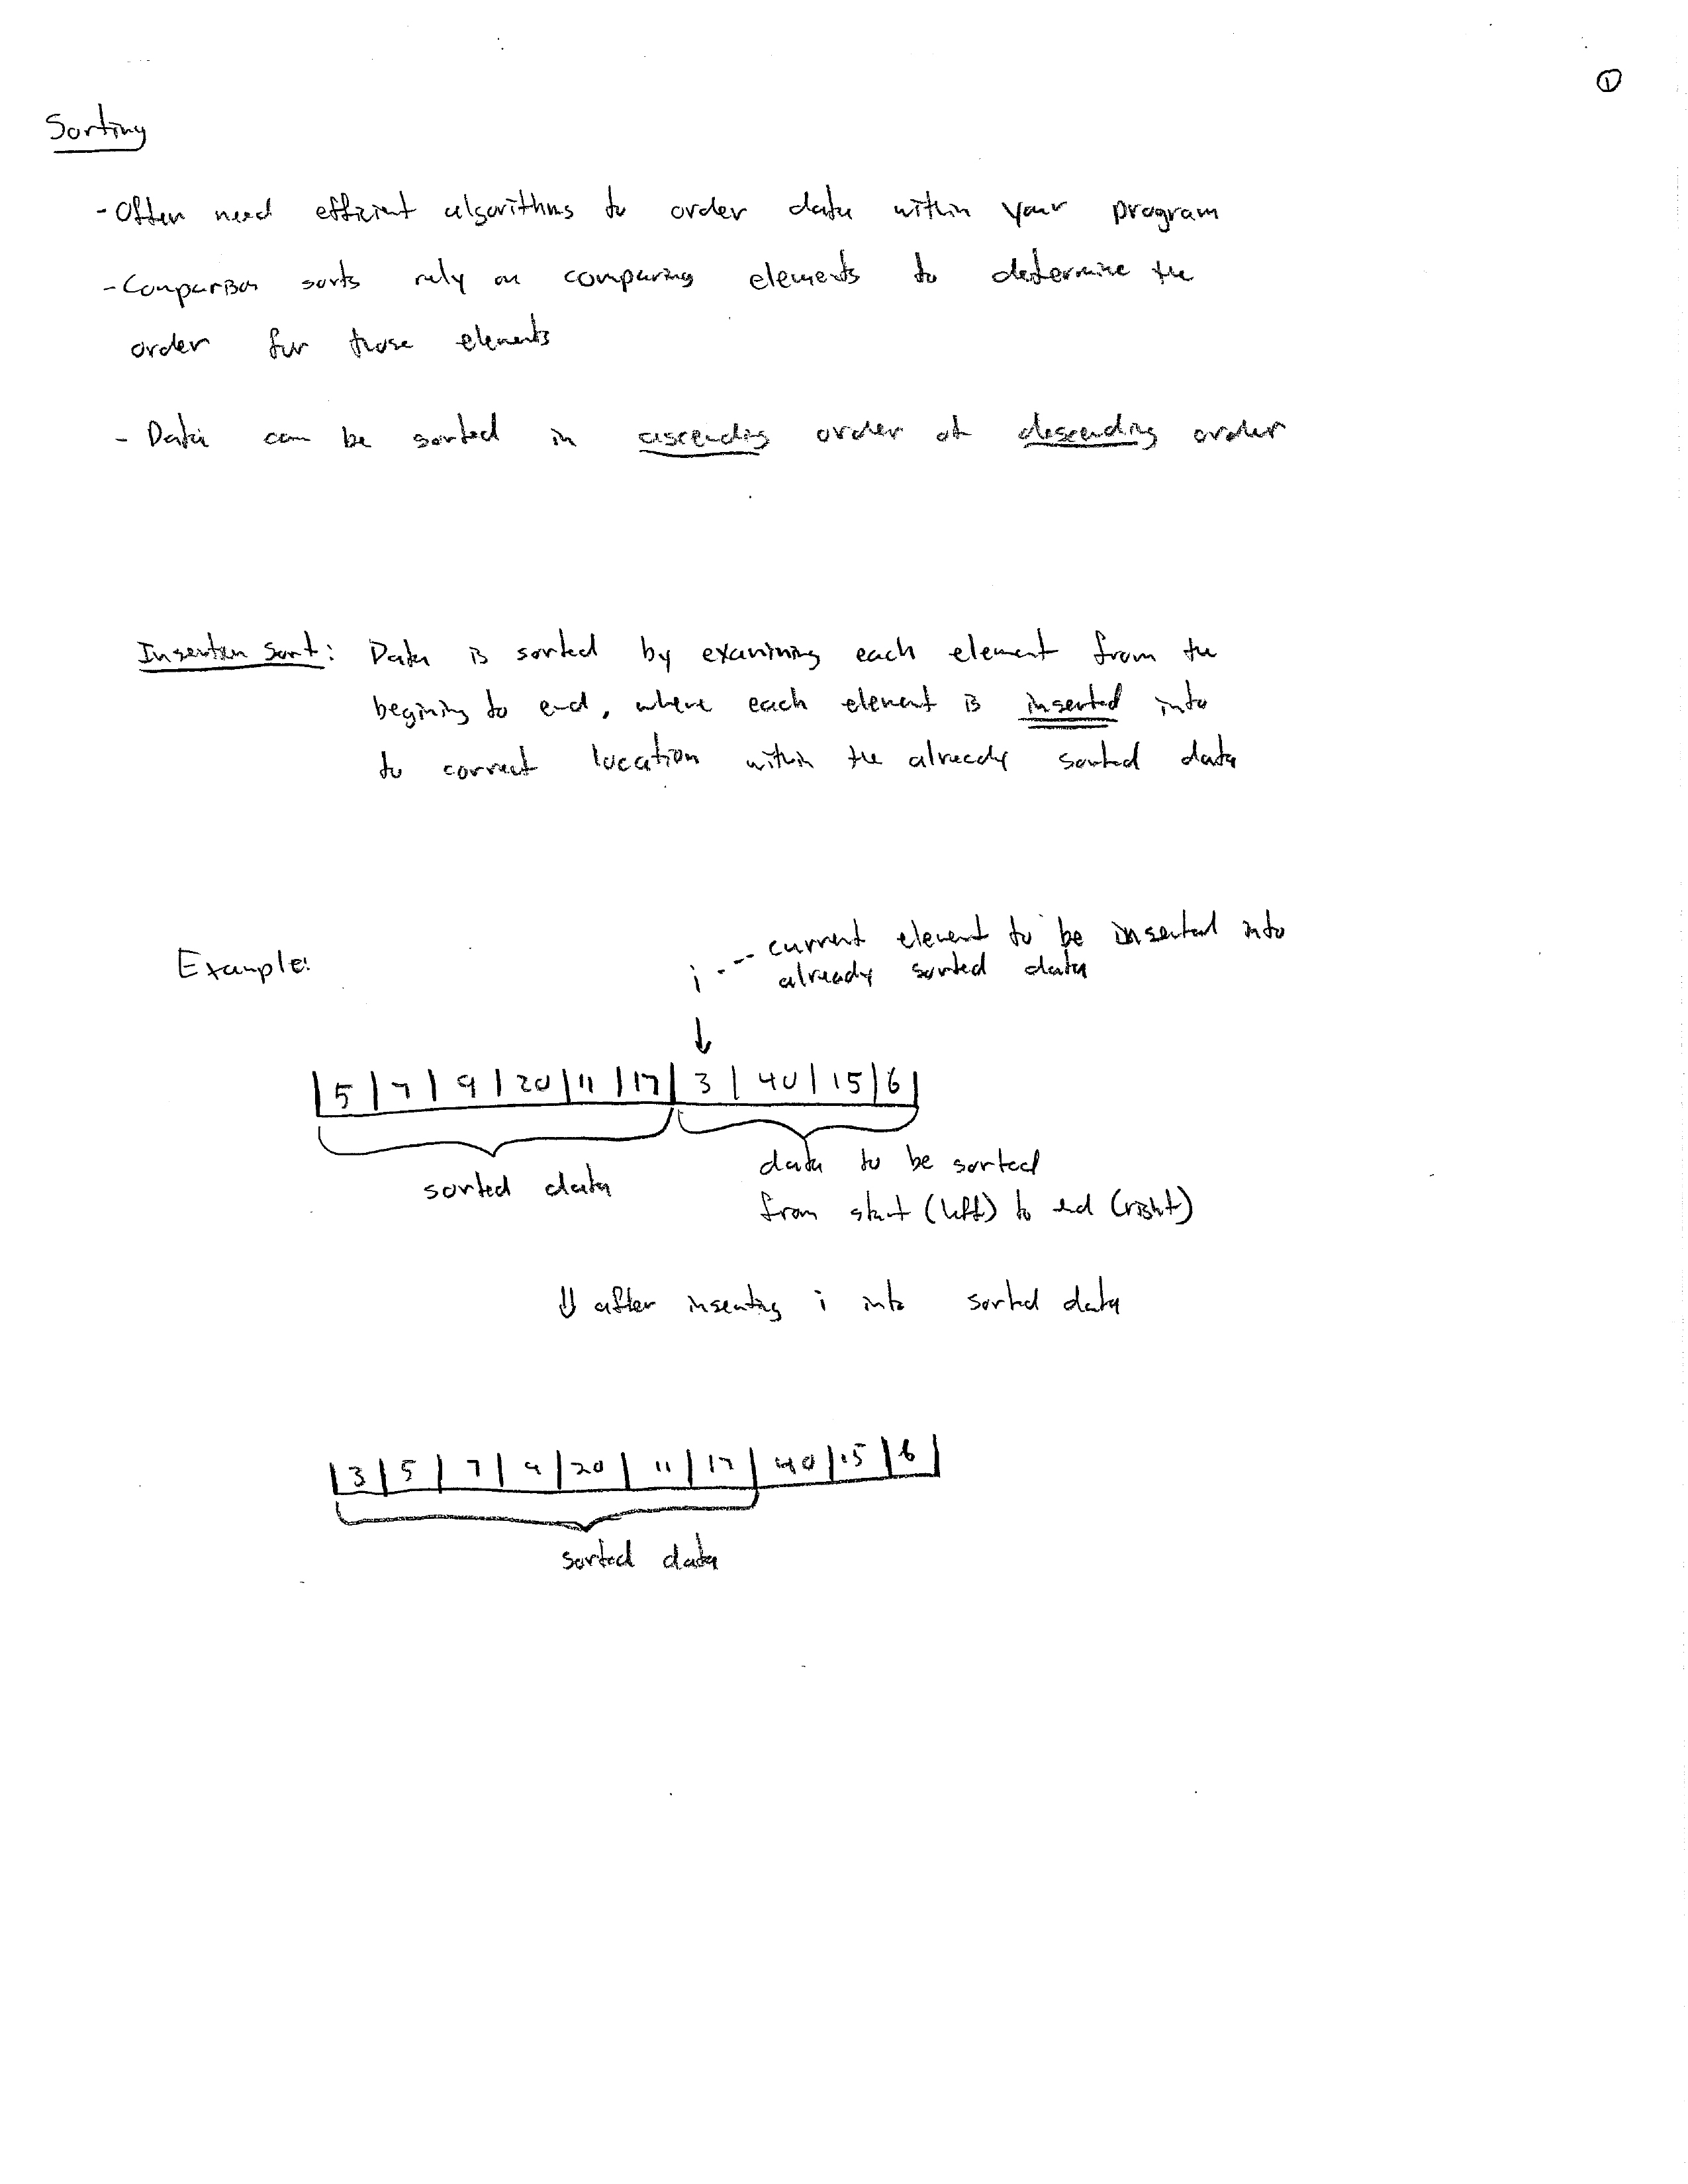 ①
Sorting
- Often need efficient algorithms to order data within your program
- Comparison sorts rely on comparing elements to determine the
order for those elements
- Data can be sorted in ascending order or descending order
Insertion Sort: Data is sorted by examining each element from the
begining to end, where each element is inserted into
to correct location within the already sorted data
Example:
i --- current element to be inserted into
already sorted data
↓
|5|7|9|20|11|17|3|40|15|6|
sorted data
data to be sorted
from start (left) to end (right)
⇓ after inserting i into sorted data
|3|5|7|9|20|11|17|40|15|6|
sorted data